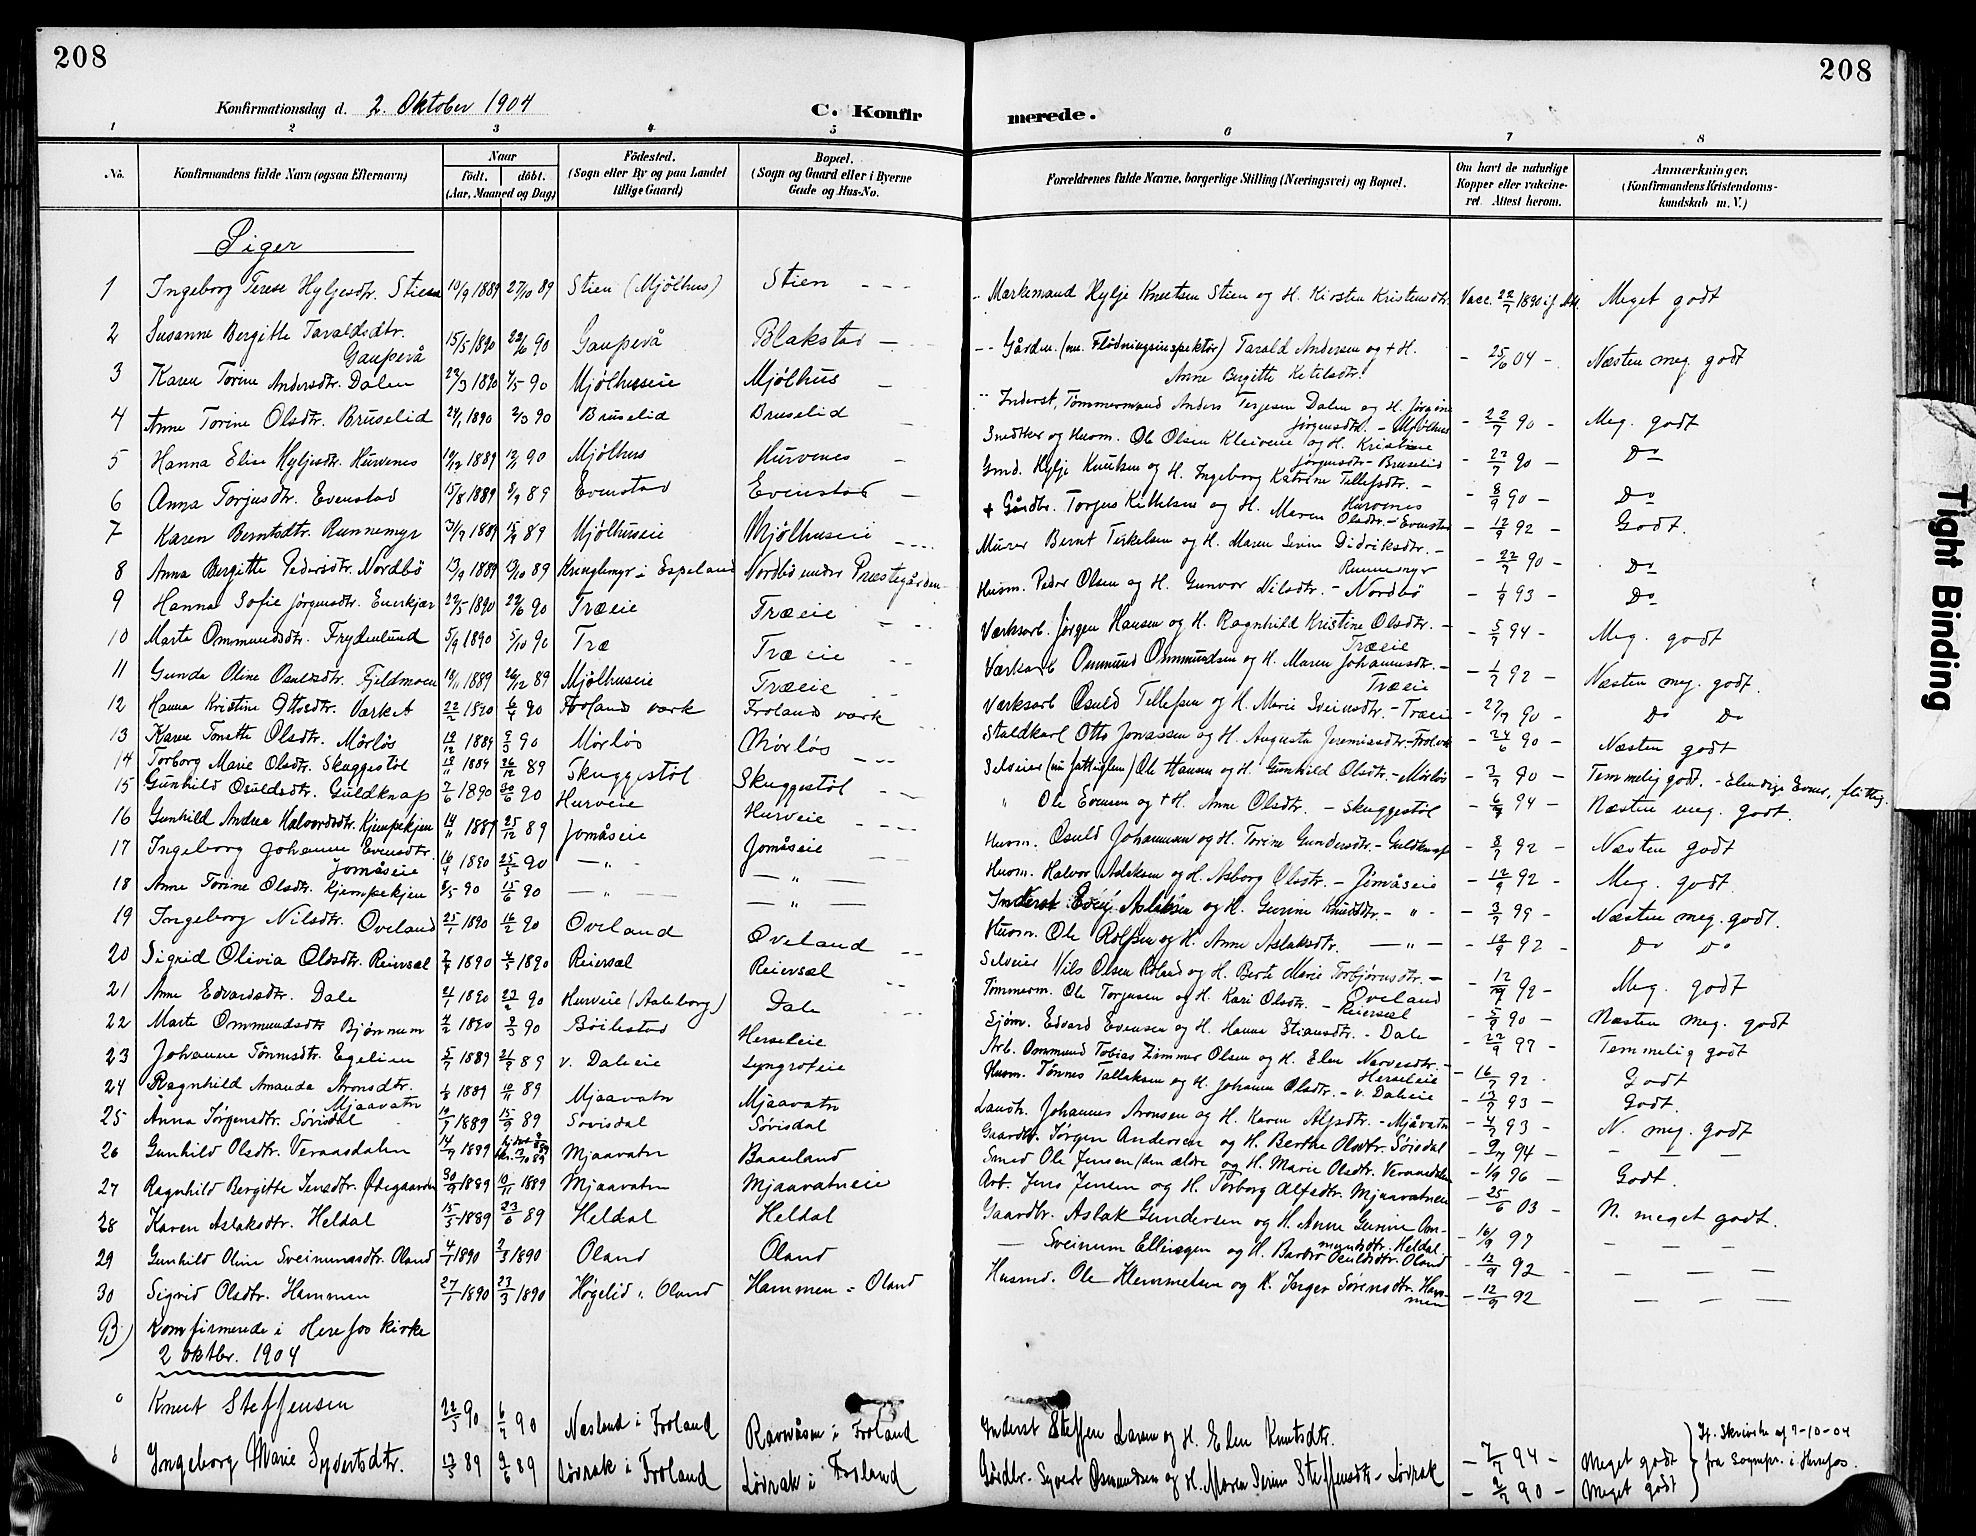 208
208
Konfirmationsdag d. 2. Oktober 1904
C. Konfir
merede.
1 2 3 4 5 6 7 8
No.
Konfirmandens fulde Navn (ogsaa Efternavn)
Naar
födt. döbt.
(Aar, Maaned og Dag)
Födested.
(Sogn eller By og paa Landet
tillige Gaard)
Bopæl.
(Sogn og Gaard eller i Byerne
Gade og Hus-No.
Forældrenes fulde Navne, borgerlige Stilling (Næringsvei) og Bopæl.
Om havt de naturlige
Kopper eller vakcine-
ret. Attest herom.
Anmærkninger.
(Konfirmandens Kristendoms-
kundskab m. V.)
Piger
1 Ingeborg Terese Hyljesdtr. Stien 10/9 1889 27/10 89 Stien (Mjölhus) Stien Markemand Hylje Knutsen Stien og H. Kirsten Kristensdtr. Vacc. 22/7 1890 Meget godt
2 Susanne Bergitte Taraldsdtr.
Gauperå 15/5 1890 22/6 90 Gauperå Blakstad Gården. (nu. Flödningsinspektör) Tarald Andersen og + H.
Anne Bergitte Ketilsdtr. 25/6 04 Næsten meg. godt
3 Karen Torine Andersdtr. Dalen 22/3 1890 4/5 90 Mjölhuseie Mjölhus Inderst, Tömmermand Anders Terjesen Dalen og H. Jörgine
Jörgensdtr. - Mjölhus 22/7 90 Meg. godt
4 Anne Torine Olsdtr. Bruselid 24/1 1890 2/3 90 Bruselid Bruselid Snedker og Husm. Ole Olsen Kleiveie og H. Kristine
Jörgensdtr - Bruselid 22/7 90 Do
5 Hanna Elise Hyljesdtr. Hurvenes 1889 90 Mjölhus Hurvenes Gmd. Hylje Knutsen og H. Ingeborg Katrine Tellefsdtr. -
Hurvenes 8/9 90 Do
6 Anna Torjusdtr. Evenstad 15/8 1889 8/9 89 Evenstad Evenstad + Gårdbr. Torjus Kittelsen og H. Maren Olsdtr. - Evenstad 12/9 92 Godt.
7 Karen Berntsdtr. Runnemyr 31/7 1889 15/9 89 Mjölhuseie Mjölhuseie Murer Bernt Terkelsen og H. Maren Sevine Didriksdtr. -
Runnemyr 22/7 90 Do
8 Anna Bergitte Pedersdtr. Nordbö 13/9 1889 13/10 89 Kringlemyr i Espeland Nordbö under Præstegården Husm. Peder Olsen og H. Gunvor Nilsdtr. - Nordbö 1/9 93 Do
9 Hanna Sofie Jörgensdtr. Enerkjær 22/5 1890 22/6 90 Træeie Træeie Værksarb. Jörgen Hansen og H. Ragnhild Kristine Olsdtr. -
Træeie 5/7 94 Meg. godt
10 Marte Ommundsdtr. Frydenlund 5/9 1890 5/10 90 Træ Træeie Værksarb Ommund Ommundsen og H. Maren Johannesdtr. -
Træeie 1/7 92 Næsten meg. godt.
11 Gunda Oline Osuldsdtr. Fjeldmoen 18/11 1889 26/12 89 Mjölhuseie Træeie Værksarb Osuld Tellefsen og H. Marie Sveinsdtr. - Træeie 27/7 90 Do Do
12 Hanna Kristine Ottosdtr. Værket 22/2 1890 6/4 90 Froland værk Froland værk Staldkarl Otto Jonassen og H. Augusta Jeremiasdtr. 24/6 90 Næsten godt
13 Karen Tonette Olsdtr. Mörlös 19/12 1889 9/3 90 Mörlös Mörlös Selveier (nu fattiglem) Ole Hansen og H. Gunhild Olsdtr. - Mörlös 3/7 90 Temmelig godt. - Elendige Evner, flittig.
14 Torborg Marie Olsdtr. Skuggestöl 1889 26/12 89 Skuggestöl Skuggestöl " Ole Evensen og + H. Anne Olsdtr. - Skuggestöl 94 Næsten meg. godt.
15 Gunhild Osuldsdtr. Guldknap 7/6 1890 30/6 90 Hurveie Hurveie Husm. Osuld Johannesen og H. Torine Gundersdtr. - Guldknap 8/7 92 Næsten godt
16 Gunhild Andrea Halvorsdtr. Kjempekjen 14/11 1889 25/12 89 Jomåseie Jomåseie Husm. Halvor Aslaksen og H. Asborg Olsdtr. - Jomåseie 12/9 92 Meg. godt.
17 Ingeborg Johanne Evensdtr.
Jomåseie 16/4 1890 25/5 90 — " — — " — Inderst Even Aslaksen og H. Gurine Knudsdtr. - " - 3/7 99 Næsten meg. godt.
18 Anne Torine Olsdtr. Kjempekjen 8/5 90 15/6 90 — " — — " — Husm. Ole Rolfsen og H. Anne Aslaksdtr. — " — 12/9 92 Do Do
19 Ingeborg Nilsdtr. Oveland 25/1 1890 16/2 90 Oveland Oveland Selveier Nils Olsen og H. Berte Marie Torbjörnsdtr. -
Oveland 92 Meg. godt
20 Sigrid Olivia Olsdtr. Reiersæl 1890 4/5 1890 Reiersæl Reiersæl Tömmerm. Ole Torjusen og H. Kari Olsdtr. - Reiersæl 90 Næsten meg. godt
21 Anne Edvardsdtr. Dale 21/1 1890 23/2 90 Hurveie (Aaleborg) Dale Sjöm. Edvard Evensen og H. Hanne Stiansdtr. - Dale 22/9 97 Temmelig godt
22 Marte Ommundsdtr Bjönnum 4/2 1890 9/3 90 Böilestad Herseleie Arb. Ommund Tobias Zimmer Olsen og H. Elen Narvesdtr. -
Herseleie 16/7 92 Godt
23 Johanne Tönnesdtr. Egelien 5/7 1889 21/7 89 v. Daleie Lyngroteie Husm. Tönnes Tallaksen og H. Johanne Olsdtr. - v. Daleie 93 Godt.
24 Ragnhild Amanda Aronsdtr.
Mjaavatn 1889 10/11 89 Mjaavatn Mjaavatn Landh. Johannes Aronsen og H. Karen Alfsdtr. - Mjåvatn 4/7 93 N. meg. godt
25 Anna Jörgensdtr. Sövisdal 1889 15/9 89 Sövisdal Sövisdal Gaardbr. Jörgen Andersen og H. Berthe Olsdtr. Söisdal 94 — — —
26 Gunhild Olsdtr. Veraasdalen 14/7 1889 Mjaavatn Baaseland Smed Ole Jensen (den ældre og H. Marie Olsdtr. Veraasdalen 1/9 96 Godt.
27 Ragnhild Bergitte Jensdtr. Ödegaarden 30/9 1889 10/11 1889 Mjaavatn Mjaavatneie Arb. Jens Jensen og H. Torborg Alfsdtr. Mjaavatneie 25/6 03 N. meget godt.
28 Karen Aslaksdtr. Heldal 15/5 1889 23/6 89 Heldal Heldal Gaardbr. Aslak Gundersen og H. Anne Gurine Om-
mundsdtr. Heldal 16/9 97 — — —
29 Gunhild Oline Sveinumsdtr. Oland 1890 2/3 1890 Oland Oland — Sveinum Ellingsen og H. Barbro Osuldsdtr. Oland 12/9 92 — — —
30 Sigrid Olsdtr. Hammen 27/1 1890 23/3 1890 Högelid " Oland Hammen = Oland Husmd. Ole Klemmetsen og H. Inger Sörensdtr. Ham-
men 12/9 92 — — —
B) Komfirmerede i Herefos kirke
2 oktbr. 1904
Knut Steffensen 22/5 90 6/7 90 Næsland i Froland Ravnåsen i Froland Inderst Steffen Larsen og H. Elen Knutsdtr. 7/7 94 Meget godt
Ingeborg Marie Syvertsdtr. 12/5 89 9/6 89 Lövrak i Froland Lövrak i Froland Gårdbr. Syvert Osmundsen og H. Maren Serine Steffensdtr - Lövrak 2/7 90 Meget godt
If. Skrivelse af 7-10-04
fra Sognepr. i Herefos.
Tight Binding